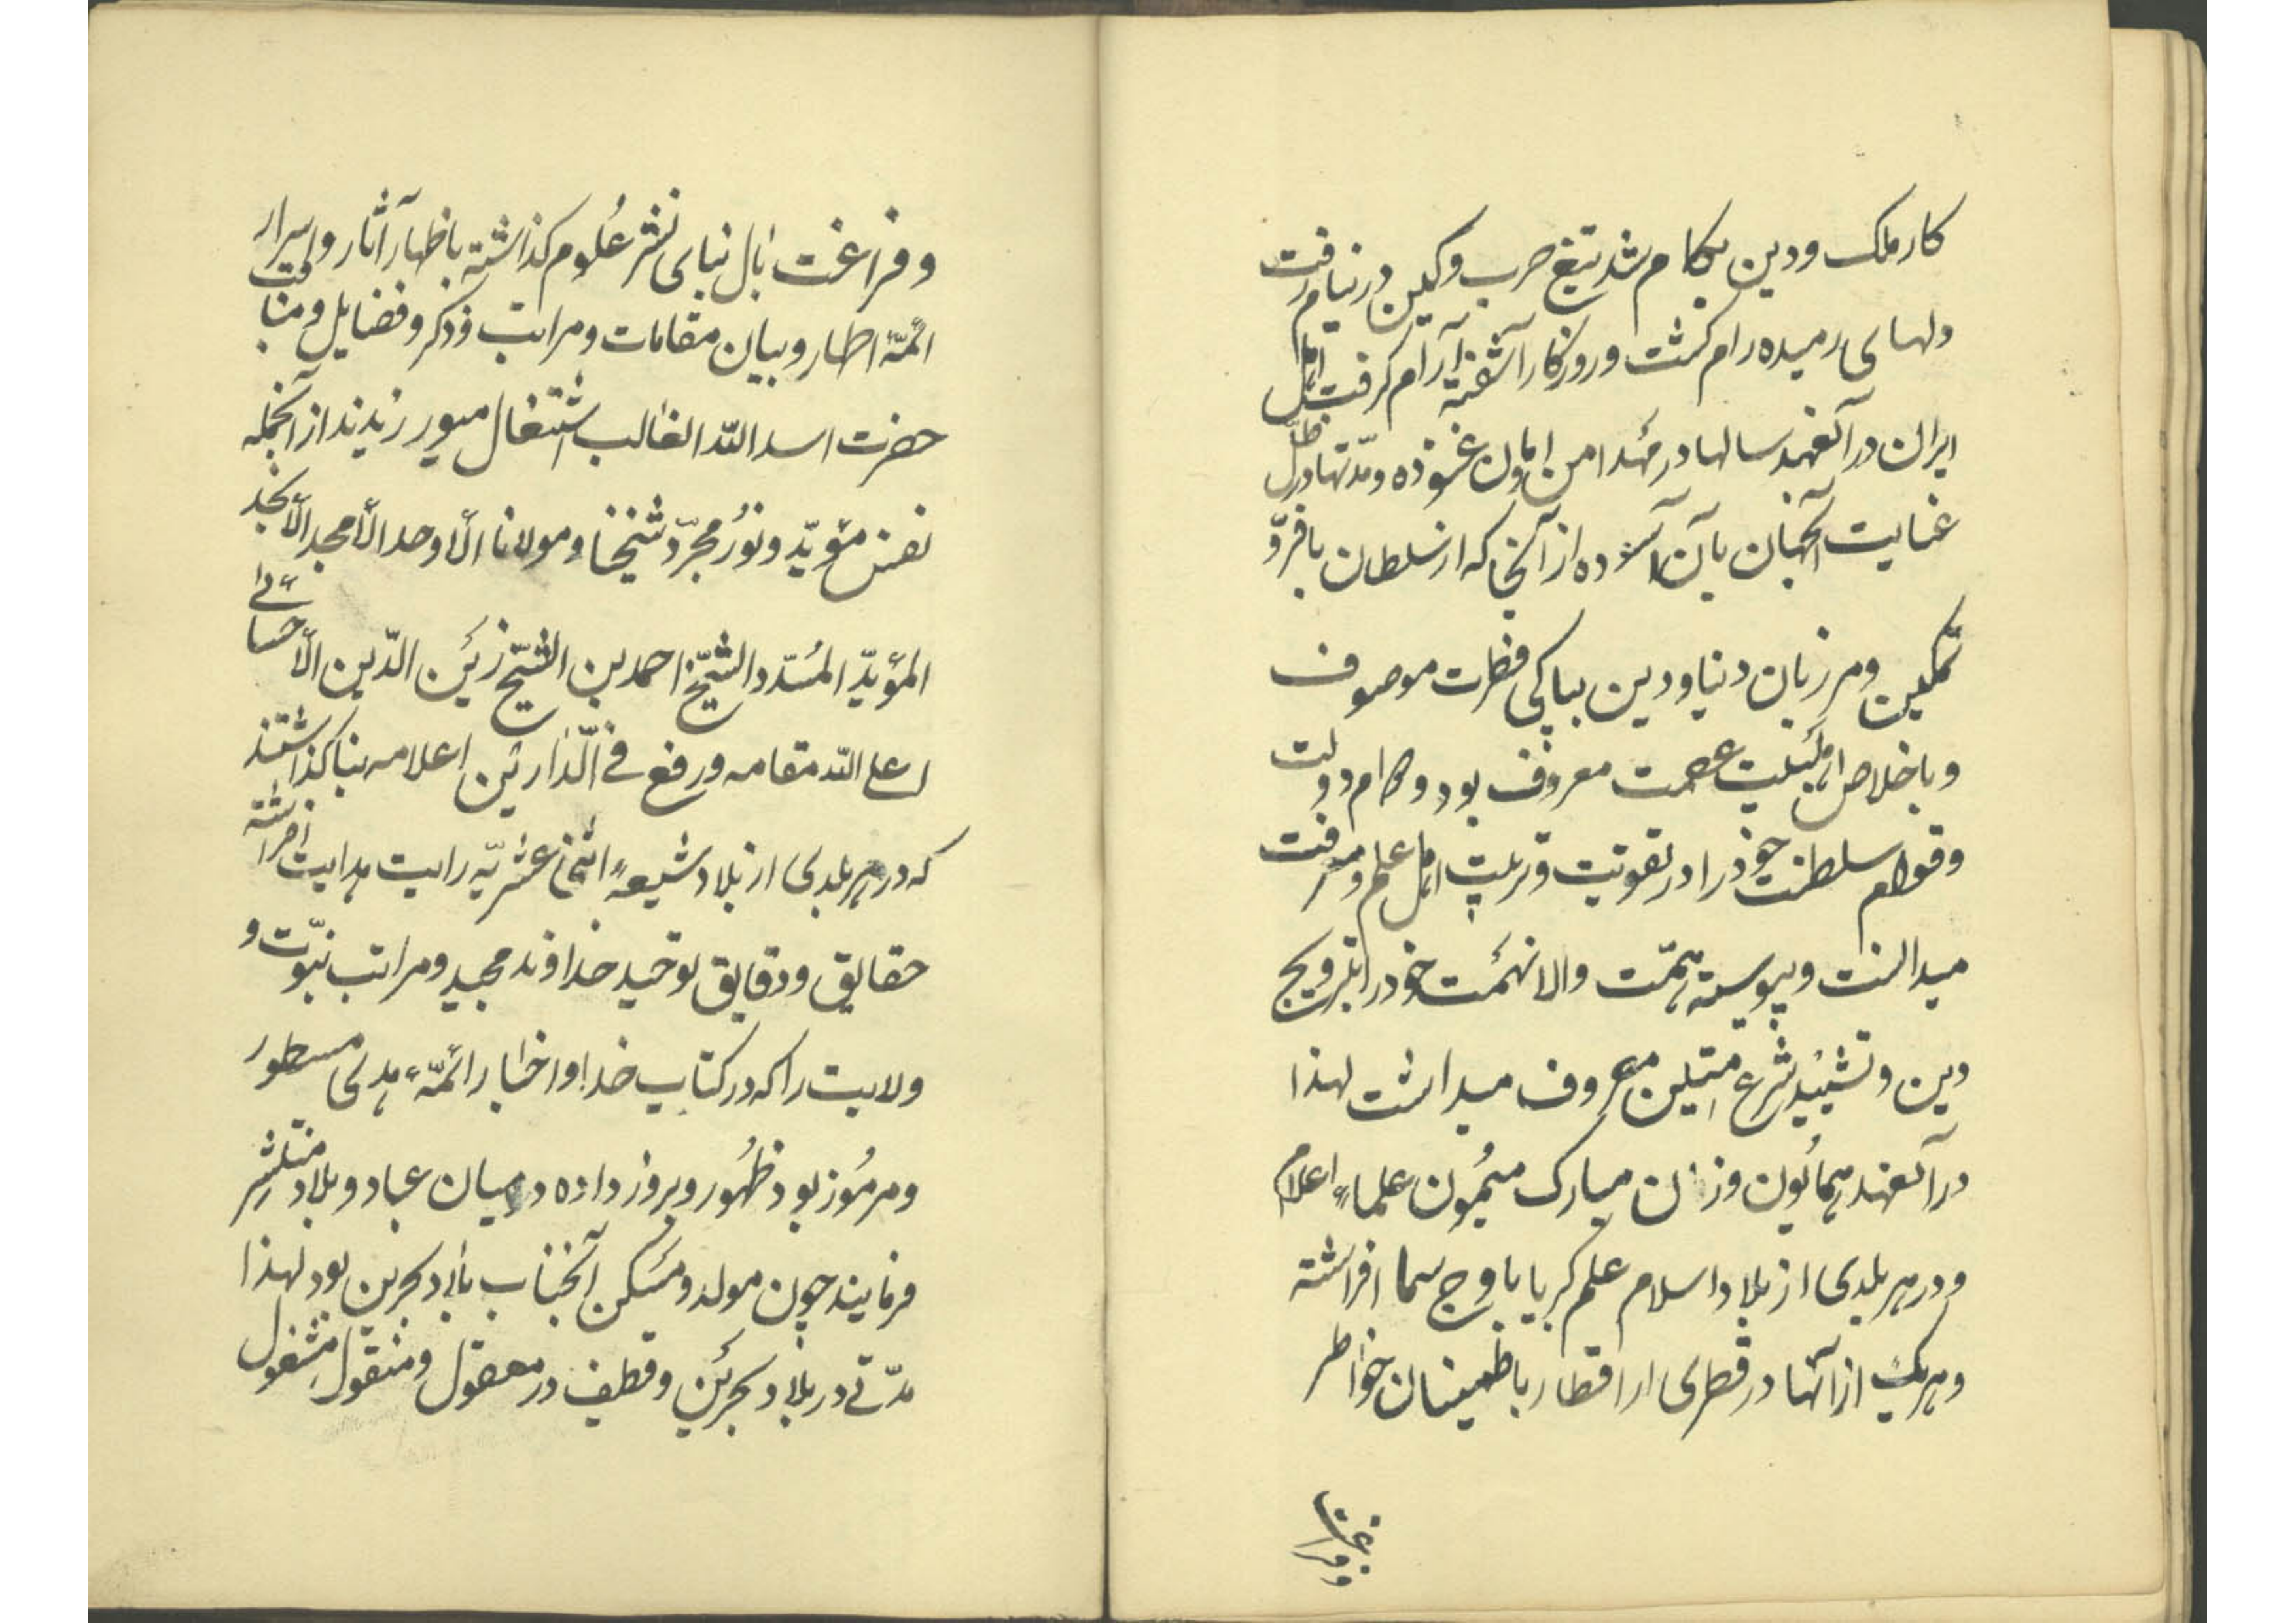 کار ملک و دین بکام شد تیغ حرب و کین در نیام رفت
دلهای رمیده رام گشت و روزگار آشفته آرام گرفت اهل
ایران در آنعهد سالها در مهد امن و امان غنوده و مدّتها در ظلّ
عنایت آنجهانبان آسوده از آنجا که ارسلطان بافرّ و
تمکین و مرزبان دنیا و دین بپاکی فطرت موصوف
و باخلاص اهلبیت عصمت معروف بود دوام دولت
و قوام سلطنت خود را در تقویت و تربیت اهل علم و معرفت
میدانست و پیوسته همّت والا نهمت خود را بترویج
دین و تشیید شرع متین معروف میداشت لهذا
در آنعهد همایون و زمان مبارک میمون علماء اعلام
و در هر بلدی از بلاد اسلام علم کبریا باوج سما افراشته
و هر یک از آنها در قطری از اقطار باطمینان خواطر
و فراغت
و فراغت بال بنای نشر علوم گذاشته باظهار آثار و اسرار
ائمّهٔ اطهار و بیان مقامات و مراتب و ذکر و فضایل و مناقب
حضرت اسد اللّه الغالب اشتغال میورزیدند از آنجمله
نفس مؤیّد و نور مجرّد شیخنا و مولانا الأوحد الأمجد الأنجد
المؤیّد المسدّد الشّیخ احمد بن الشّیخ زین الدّین الأحسائی
اعلی اللّه مقامه و رفع فی الدّارین اعلامه بنا گذاشتند
که در هر بلدی از بلاد شیعهٔ اثنی عشریّه رایت هدایت افراشته
حقایق و دقایق توحید خداوند مجید و مراتب نبوّت و
ولایت را که در کتاب خدا و اخبار ائمّهٔ هدی مسطور
و مرموز بود ظهور و بروز داده در میان عباد و بلاد منتشر
فرمایند چون مولد و مسکن آنجناب بلاد بحرین بود لهذا
مدّتی در بلاد بحرین و قطیف در معقول و منقول مشغول